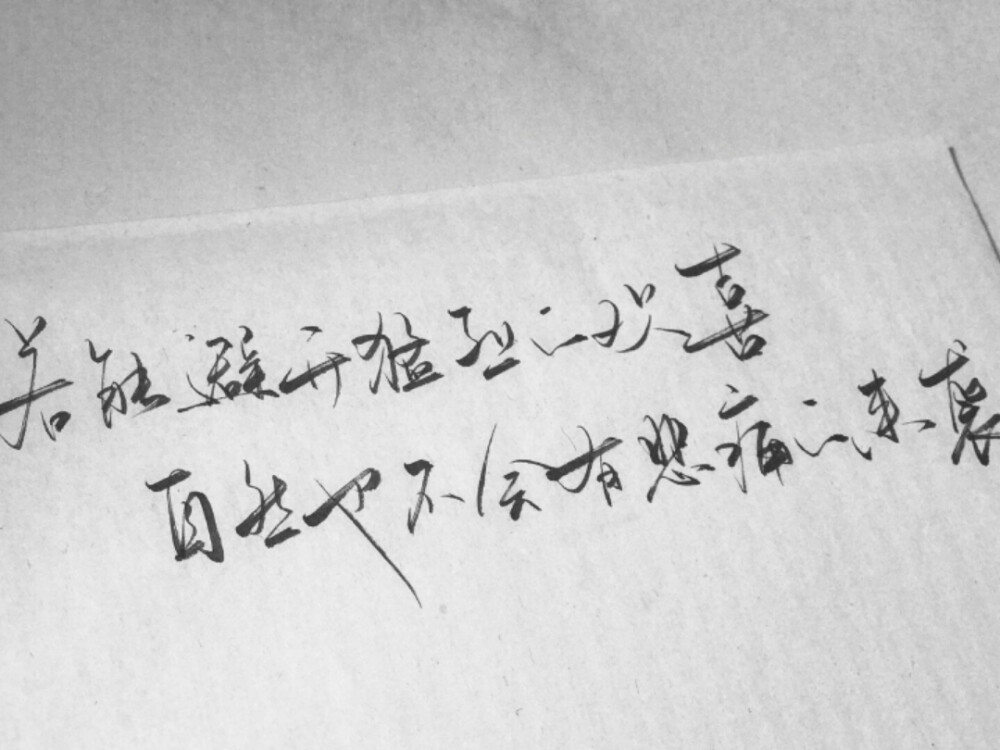 若能避开猛烈的欢喜
自然也不会有悲痛的来袭